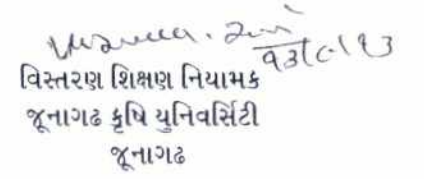 ૧૩/૯/૧૩
વિસ્તરણ શિક્ષણ નિયામક
જૂનાગઢ કૃષિ યુનિવર્સિટી
જૂનાગઢ